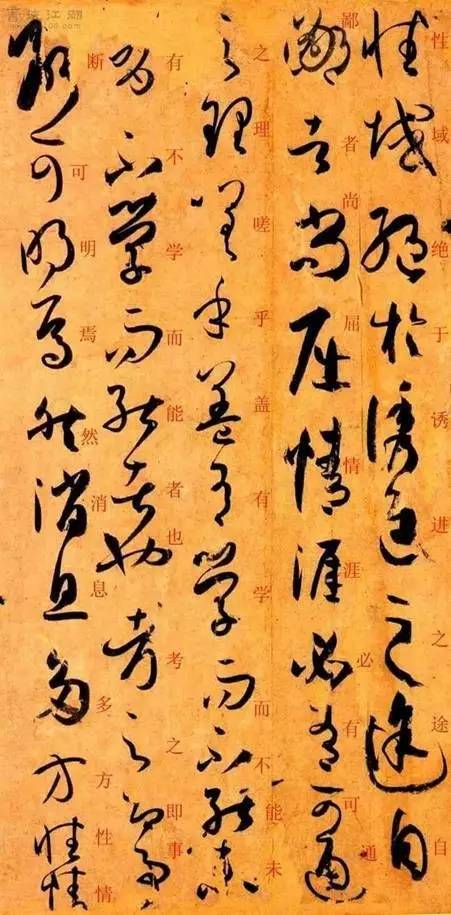 性域绝于诱进之途自
鄙者尚屈情涯必有可通
之理嗟乎盖有学而不能未
有不学而能者也考之即事
断可明焉然消息多方性情